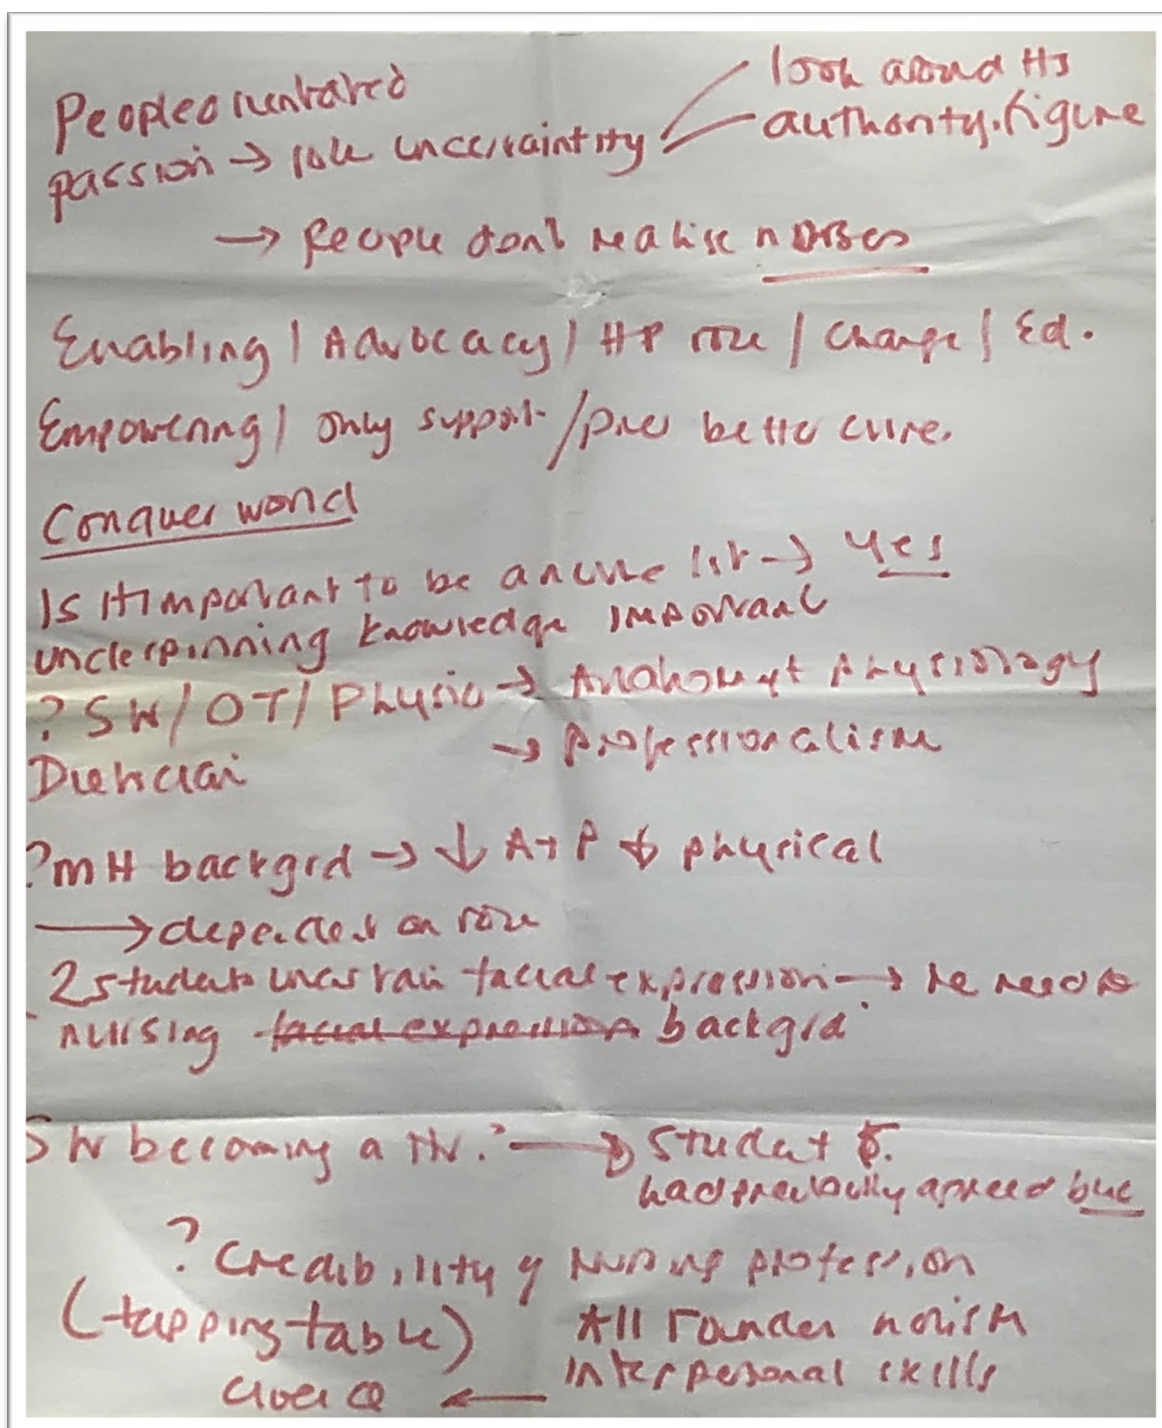 People orientated
look around HS
passion → role uncertaintity
authority figure
→ People don't realise nurses
Enabling / Advocacy / HP role / Change / Ed.
Empowering / only support / prev better cure.
Conquer world
Is it important to be a nurse 1st → Yes
underpinning knowledge important
? SW / OT / Physio → Anatomy + Physiology
→ Professionalism
Dietician
? MH backgrd → ↓ A + P ↓ physical
→ dependent on role
2 students uncertain facial expression →
nursing facial expression backgrd
SW becoming a HV? → Student 5.
had previously agreed but
? Credibility of Nursing profession
(tapping table) All rounder
Interpersonal skills
←